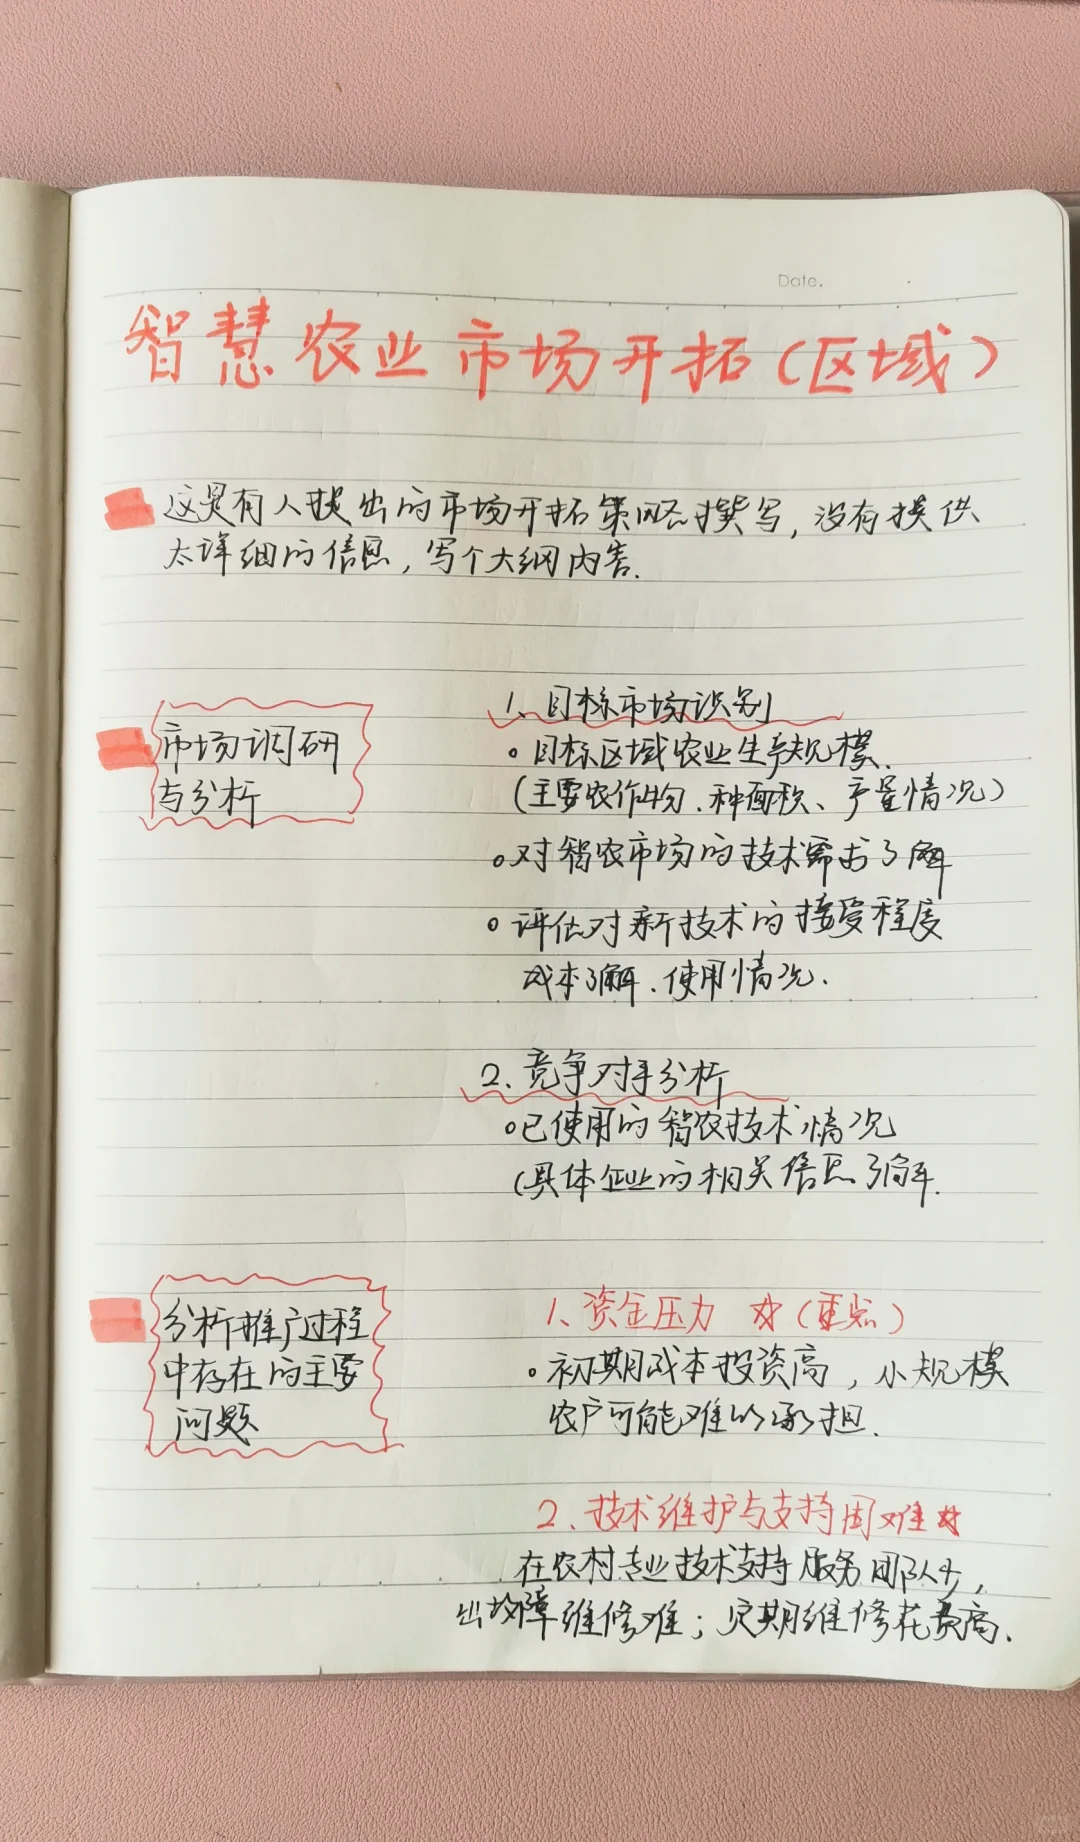 Date.
智慧农业市场开拓（区域）
这是有人提出的市场开拓策略撰写，没有提供
太详细的信息，写个大纲内容.
市场调研
与分析
1、目标市场识别
。目标区域农业生产规模.
（主要农作物、种面积、产量情况）
。对智农市场的技术需求了解
。评估对新技术的接受程度
成本了解、使用情况.
2、竞争对手分析
。已使用的智农技术情况
（具体企业的相关信息了解.
分析推广过程
中存在的主要
问题
1、资金压力 ☆（重点）
。初期成本投资高，小规模
农户可能难以承担.
2、技术维护与支持困难☆
在农村专业技术支持服务团队少，
出故障维修难；定期维修花费高.